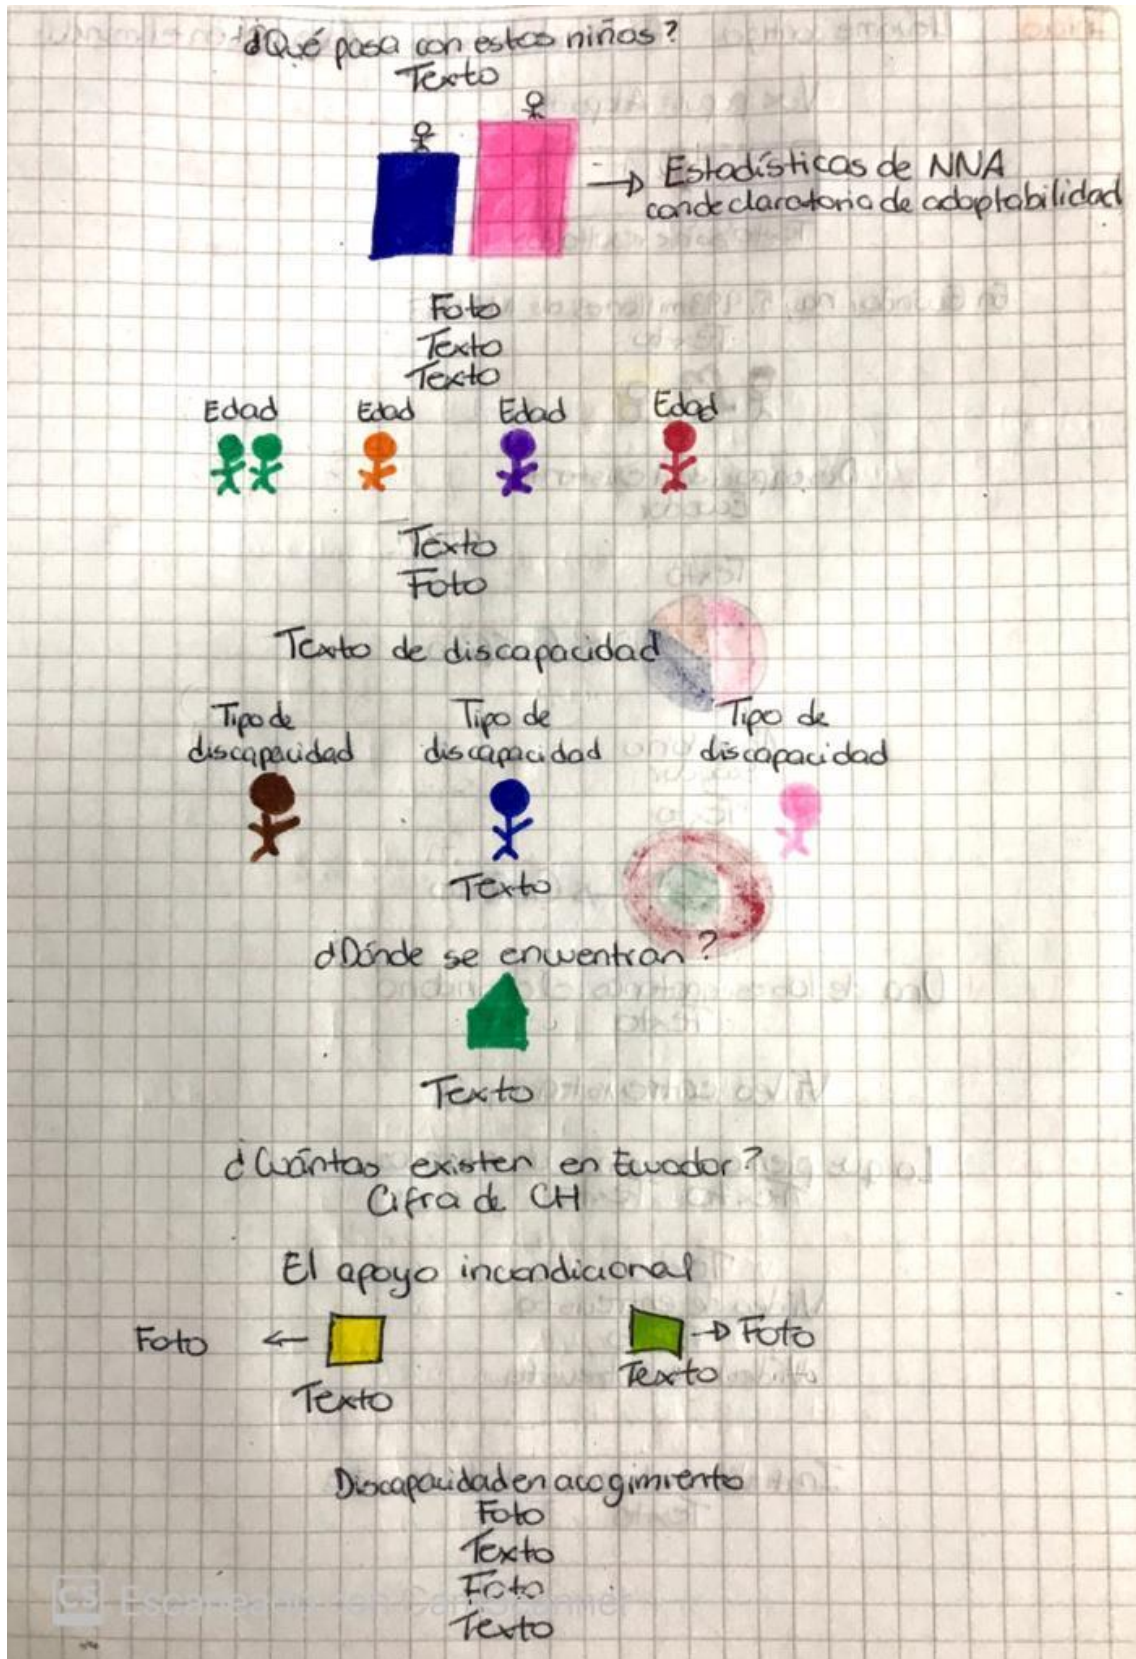 ¿Qué pasa con estos niños?
Texto
→ Estadísticas de NNA
con declaratoria de adoptabilidad
Foto
Texto
Texto
Edad Edad Edad Edad
Texto
Foto
Texto de discapacidad
Tipo de Tipo de Tipo de
discapacidad discapacidad discapacidad
Texto
¿Dónde se encuentran?
Texto
¿Cuántas existen en Ecuador?
Cifra de CH
El apoyo incondicional
Foto ← → Foto
Texto Texto
Discapacidad en acogimiento
Foto
Texto
Foto
Texto
CS Escaneado con CamScanner